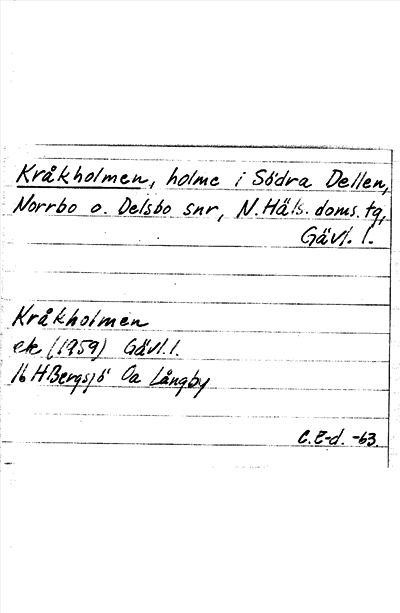 Kråkholmen, holme i Södra Dellen,
Norrbo o. Delsbo snr, N. Häls. doms. tg,
Gävl. l.
Kråkholmen
ek (1959) Gävl. l.
16 H Bergsjö 0a Långby
C. E-d. -63.